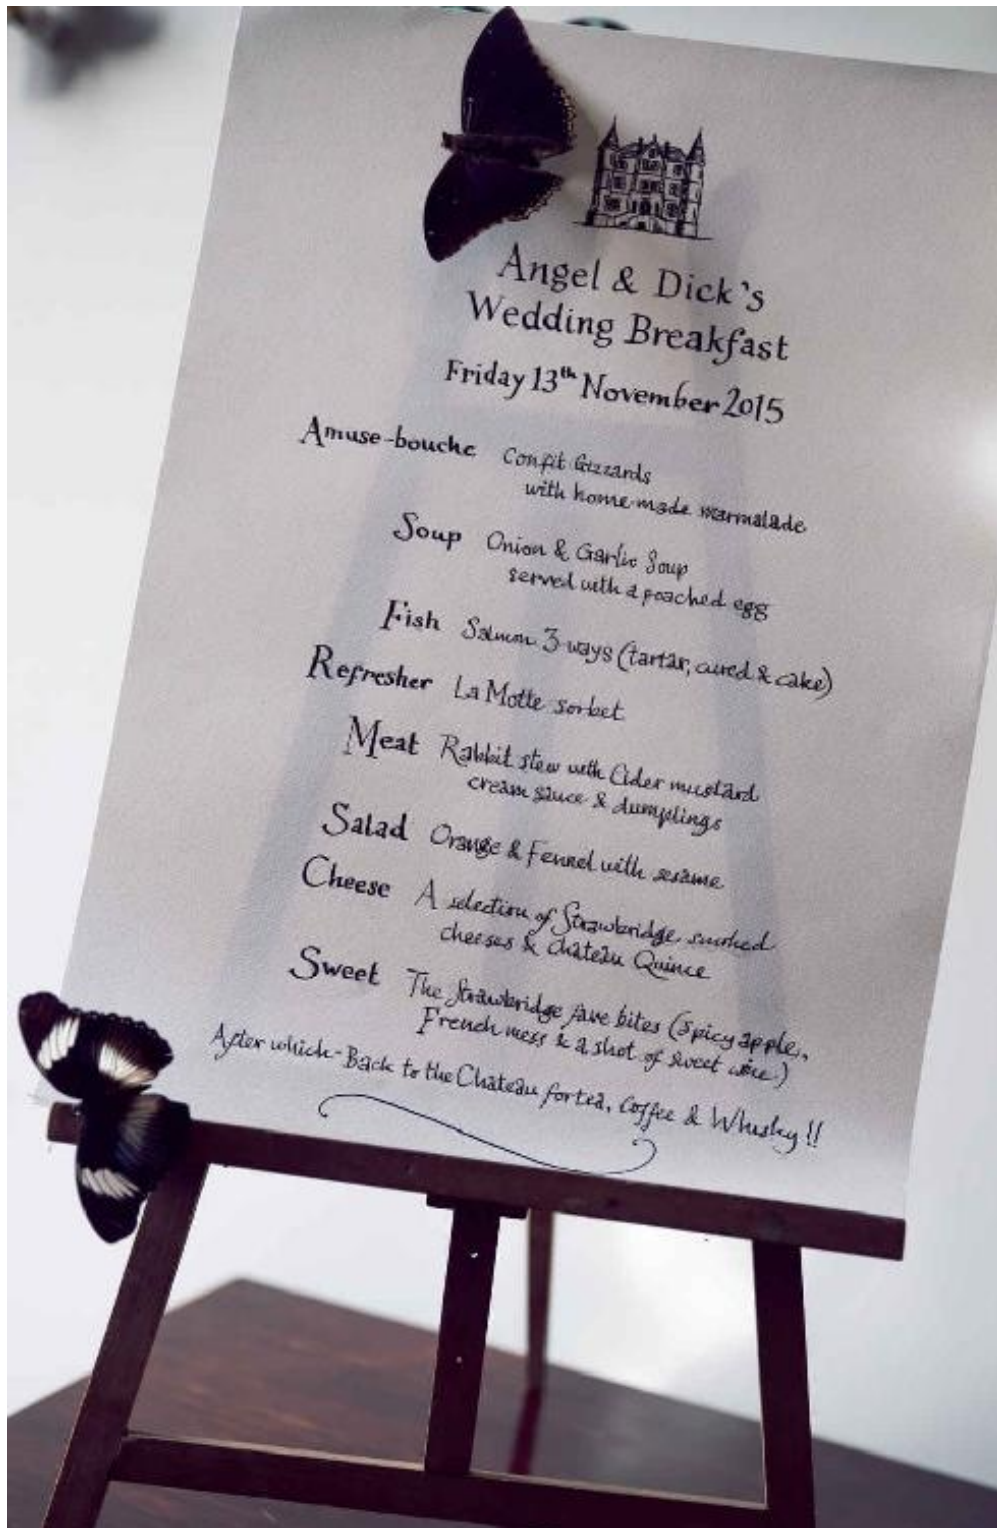 Angel & Dick's
Wedding Breakfast
Friday 13th November 2015
Amuse-bouche Confit Gizzards
with home-made marmalade
Soup Onion & Garlic Soup
served with a poached egg
Fish Salmon 3-ways (tartar, cured & cake)
Refresher La Motte sorbet
Meat Rabbit stew with Cider mustard
cream sauce & dumplings
Salad Orange & Fennel with sesame
Cheese A selection of Strawbridge smoked
cheeses & Château Quince
Sweet The Strawbridge fave bites (spicy apple,
French mess & a shot of sweet wine)
After which - Back to the Château for tea, Coffee & Whisky!!